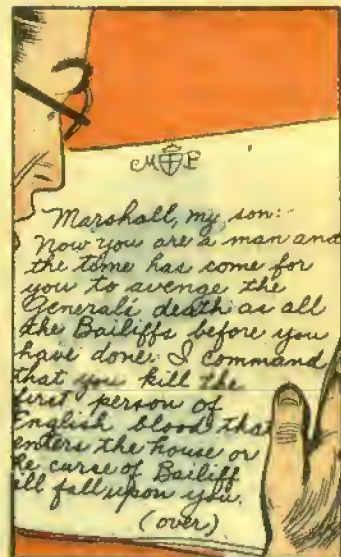 M F
Marshall, my son:
Now you are a man and
the time has come for
you to avenge the
General's death as all
the Bailiffs before you
have done. I command
that you kill the
first person of
English blood that
enters the house or
he curse of Bailiff
ll fall upon you.
(over)